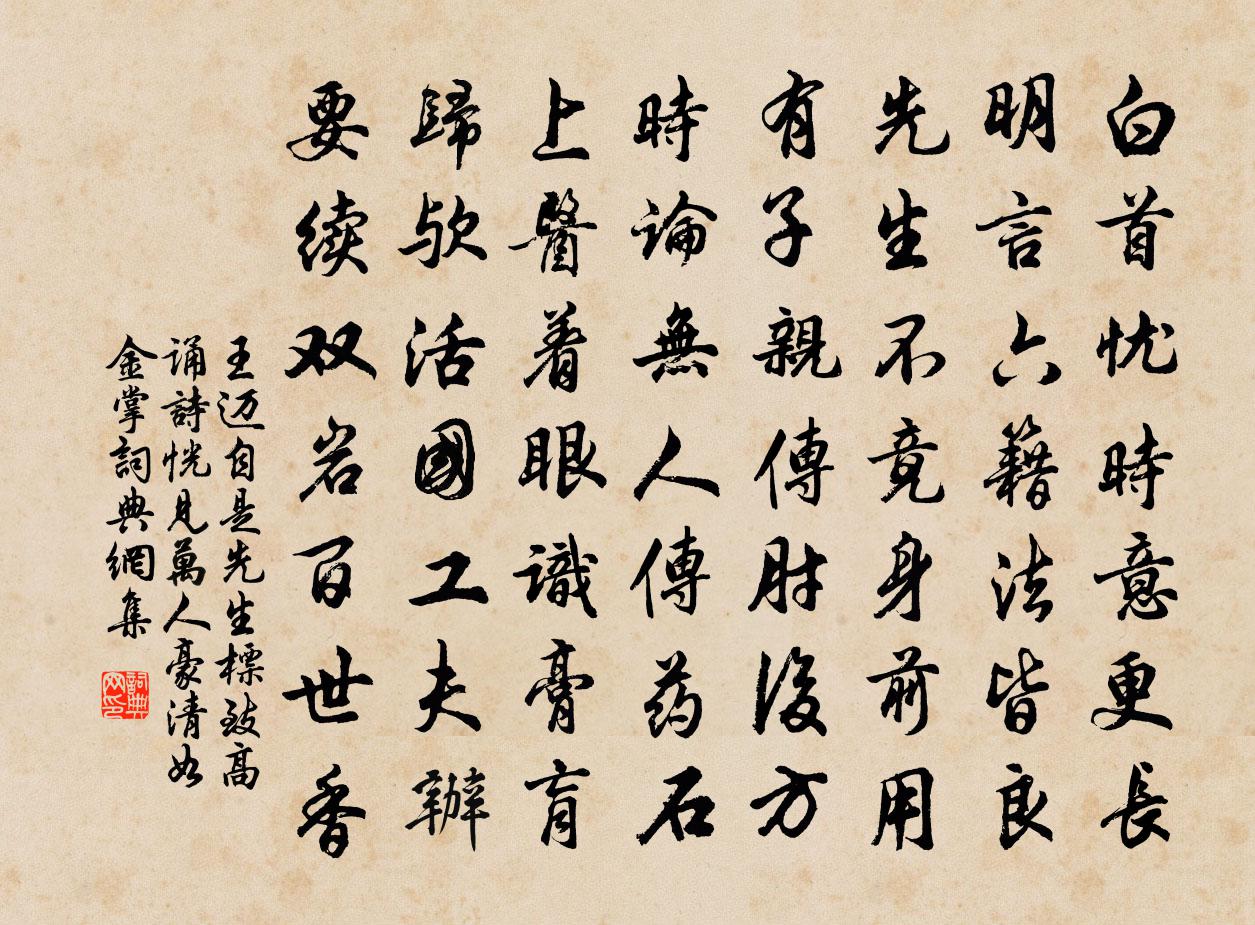 白首忧時意更長
明言六籍法皆良
先生不竟身前用
有子親傳肘後方
時論無人傳药石
上醫着眼識膏肓
歸欤活國工夫辦
要续双岩百世香
王迈自是先生標致高
诵詩恍见萬人豪清如
金掌詞典網集
詞典网印